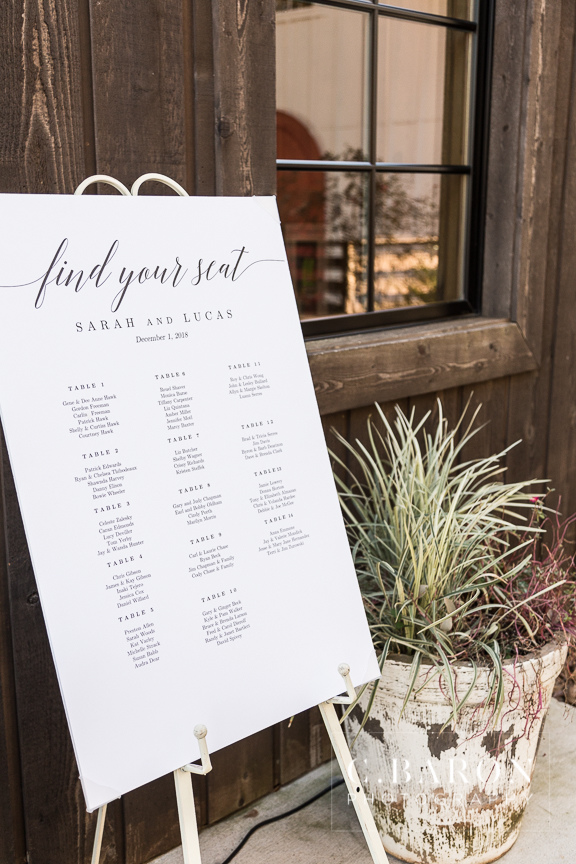 find your seat
SARAH AND LUCAS
December 1, 2018
TABLE 1
Gene & Dee Anne Hawk
Gordon Freeman
Caitlin Freeman
Patrick Hawk
Shelly & Curtiss Hawk
Courtney Hawk
TABLE 2
Patrick Edwards
Ryan & Chelsea Thibodeaux
Shawnda Harvey
Danny Elison
Bowie Wheeler
TABLE 3
Celeste Zalesky
Cavan Edmonds
Lucy Deviller
Tom Yerby
Jay & Wanda Hunter
TABLE 4
Chris Gibson
James & Kay Gibson
Inaki Tejero
Jessica Cox
Daniel Willard
TABLE 5
Preston Allen
Sarah Woods
Kat Varley
Michelle Strack
Susan Balsh
Audra Dear
TABLE 6
Monica Burns
Tiffany Carpenter
Liz Quintana
Amber Miller
Jennifer Mohl
Marcy Baxter
TABLE 7
Liz Butcher
Shelby Wagner
Corey Richards
Kristen Steffek
TABLE 8
Gary and Judy Chapman
Earl and Bobby Oldham
Cindy Porth
Marilyn Morris
TABLE 9
Carl & Laurie Chase
Ryne Beck
Jim Chapman & Family
Cody Chase & Family
TABLE 10
Gary & Ginger Beck
Kyle & Pam Walker
Bruce & Brenda Larson
Fred & Carol Dowell
Randy & Janet Bartlett
David Spivey
TABLE 11
Roy & Chris Wong
John & Lesley Ballard
Laurie Storms
TABLE 12
Brad & Trivia Serres
Jim Davis
Byron & Barb Dearman
Dave & Brenda Clark
TABLE 13
Jamie Lowrey
Donna Horton
Tony & Elizabeth Alverson
Chris & Yolanda Rincher
Debbie & Joe McGee
TABLE 14
Anna Enmone
Jay & Valerie Mauldin
Jesse & Mary Jane Hernandez
Terri & Jim Zurawski
C. BARON
PHOTOGRAPHY